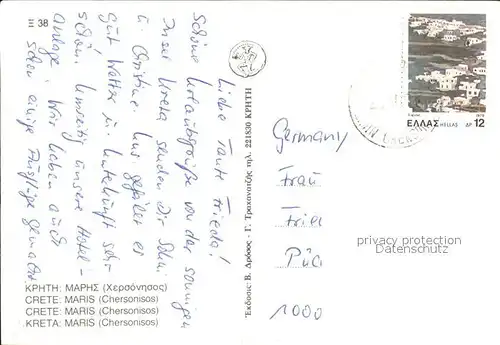 Ξ 38
Liebe Tante Frieda!
Schöne Urlaubsgrüße von der sonnigen
Insel Kreta senden Dir
u. Christine. Uns gefällt es
gut Wetter u. Unterkunft sehr
schön. unsere Hotel-
anlage. Wir haben auch
schon einige Ausflüge gemacht
ΚΡΗΤΗ: ΜΑΡΗΣ (Χερσόνησος)
CRETE: MARIS (Chersonisos)
CRETE: MARIS (Chersonisos)
KRETA: MARIS (Chersonisos)
Έκδοσις: Β. Δρόσος - Γ. Τραχανατζής τηλ. 221830 ΚΡΗΤΗ
ΕΛΛΑΣ HELLAS ΔΡ 12
Germany
Frau
Frie
Püc
1000
privacy protection
Datenschutz